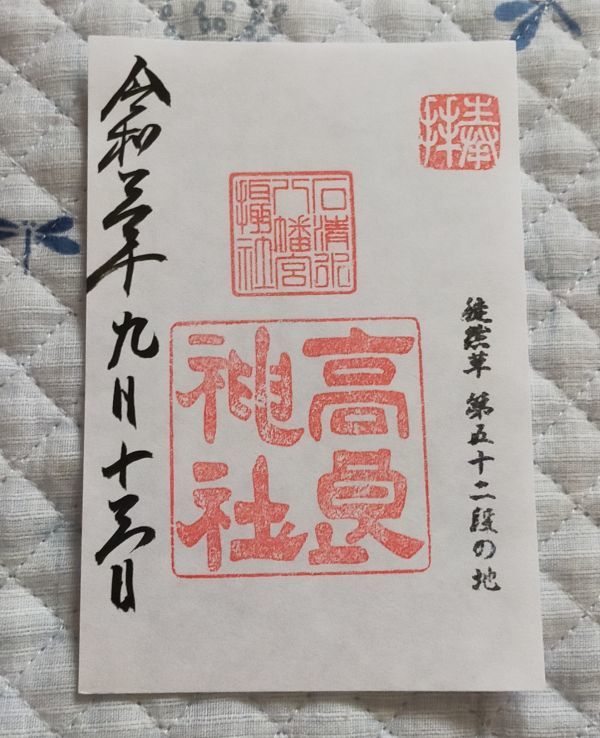 奉拝
徒然草 第五十二段の地
石清水八幡宮攝社
高良神社
令和三年九月十三日